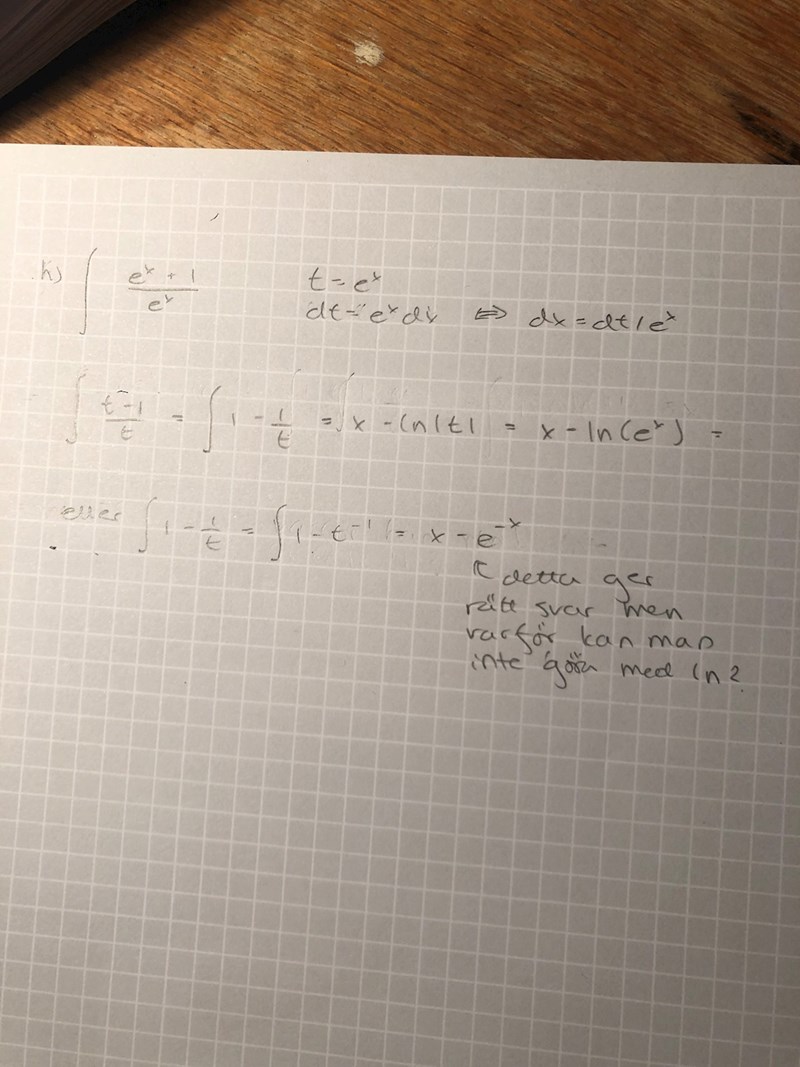 h) ∫ (e^x + 1)/e^x t = e^x
dt = e^x dx ⇔ dx = dt/e^x
∫ (t-1)/t = ∫ 1 - 1/t = ∫ x - ln|t| = x - ln(e^x) =
eller ∫ 1 - 1/t = ∫ 1 - t^-1 = x - e^-x
↖ detta ger
rätt svar men
varför kan man
inte göra med ln?